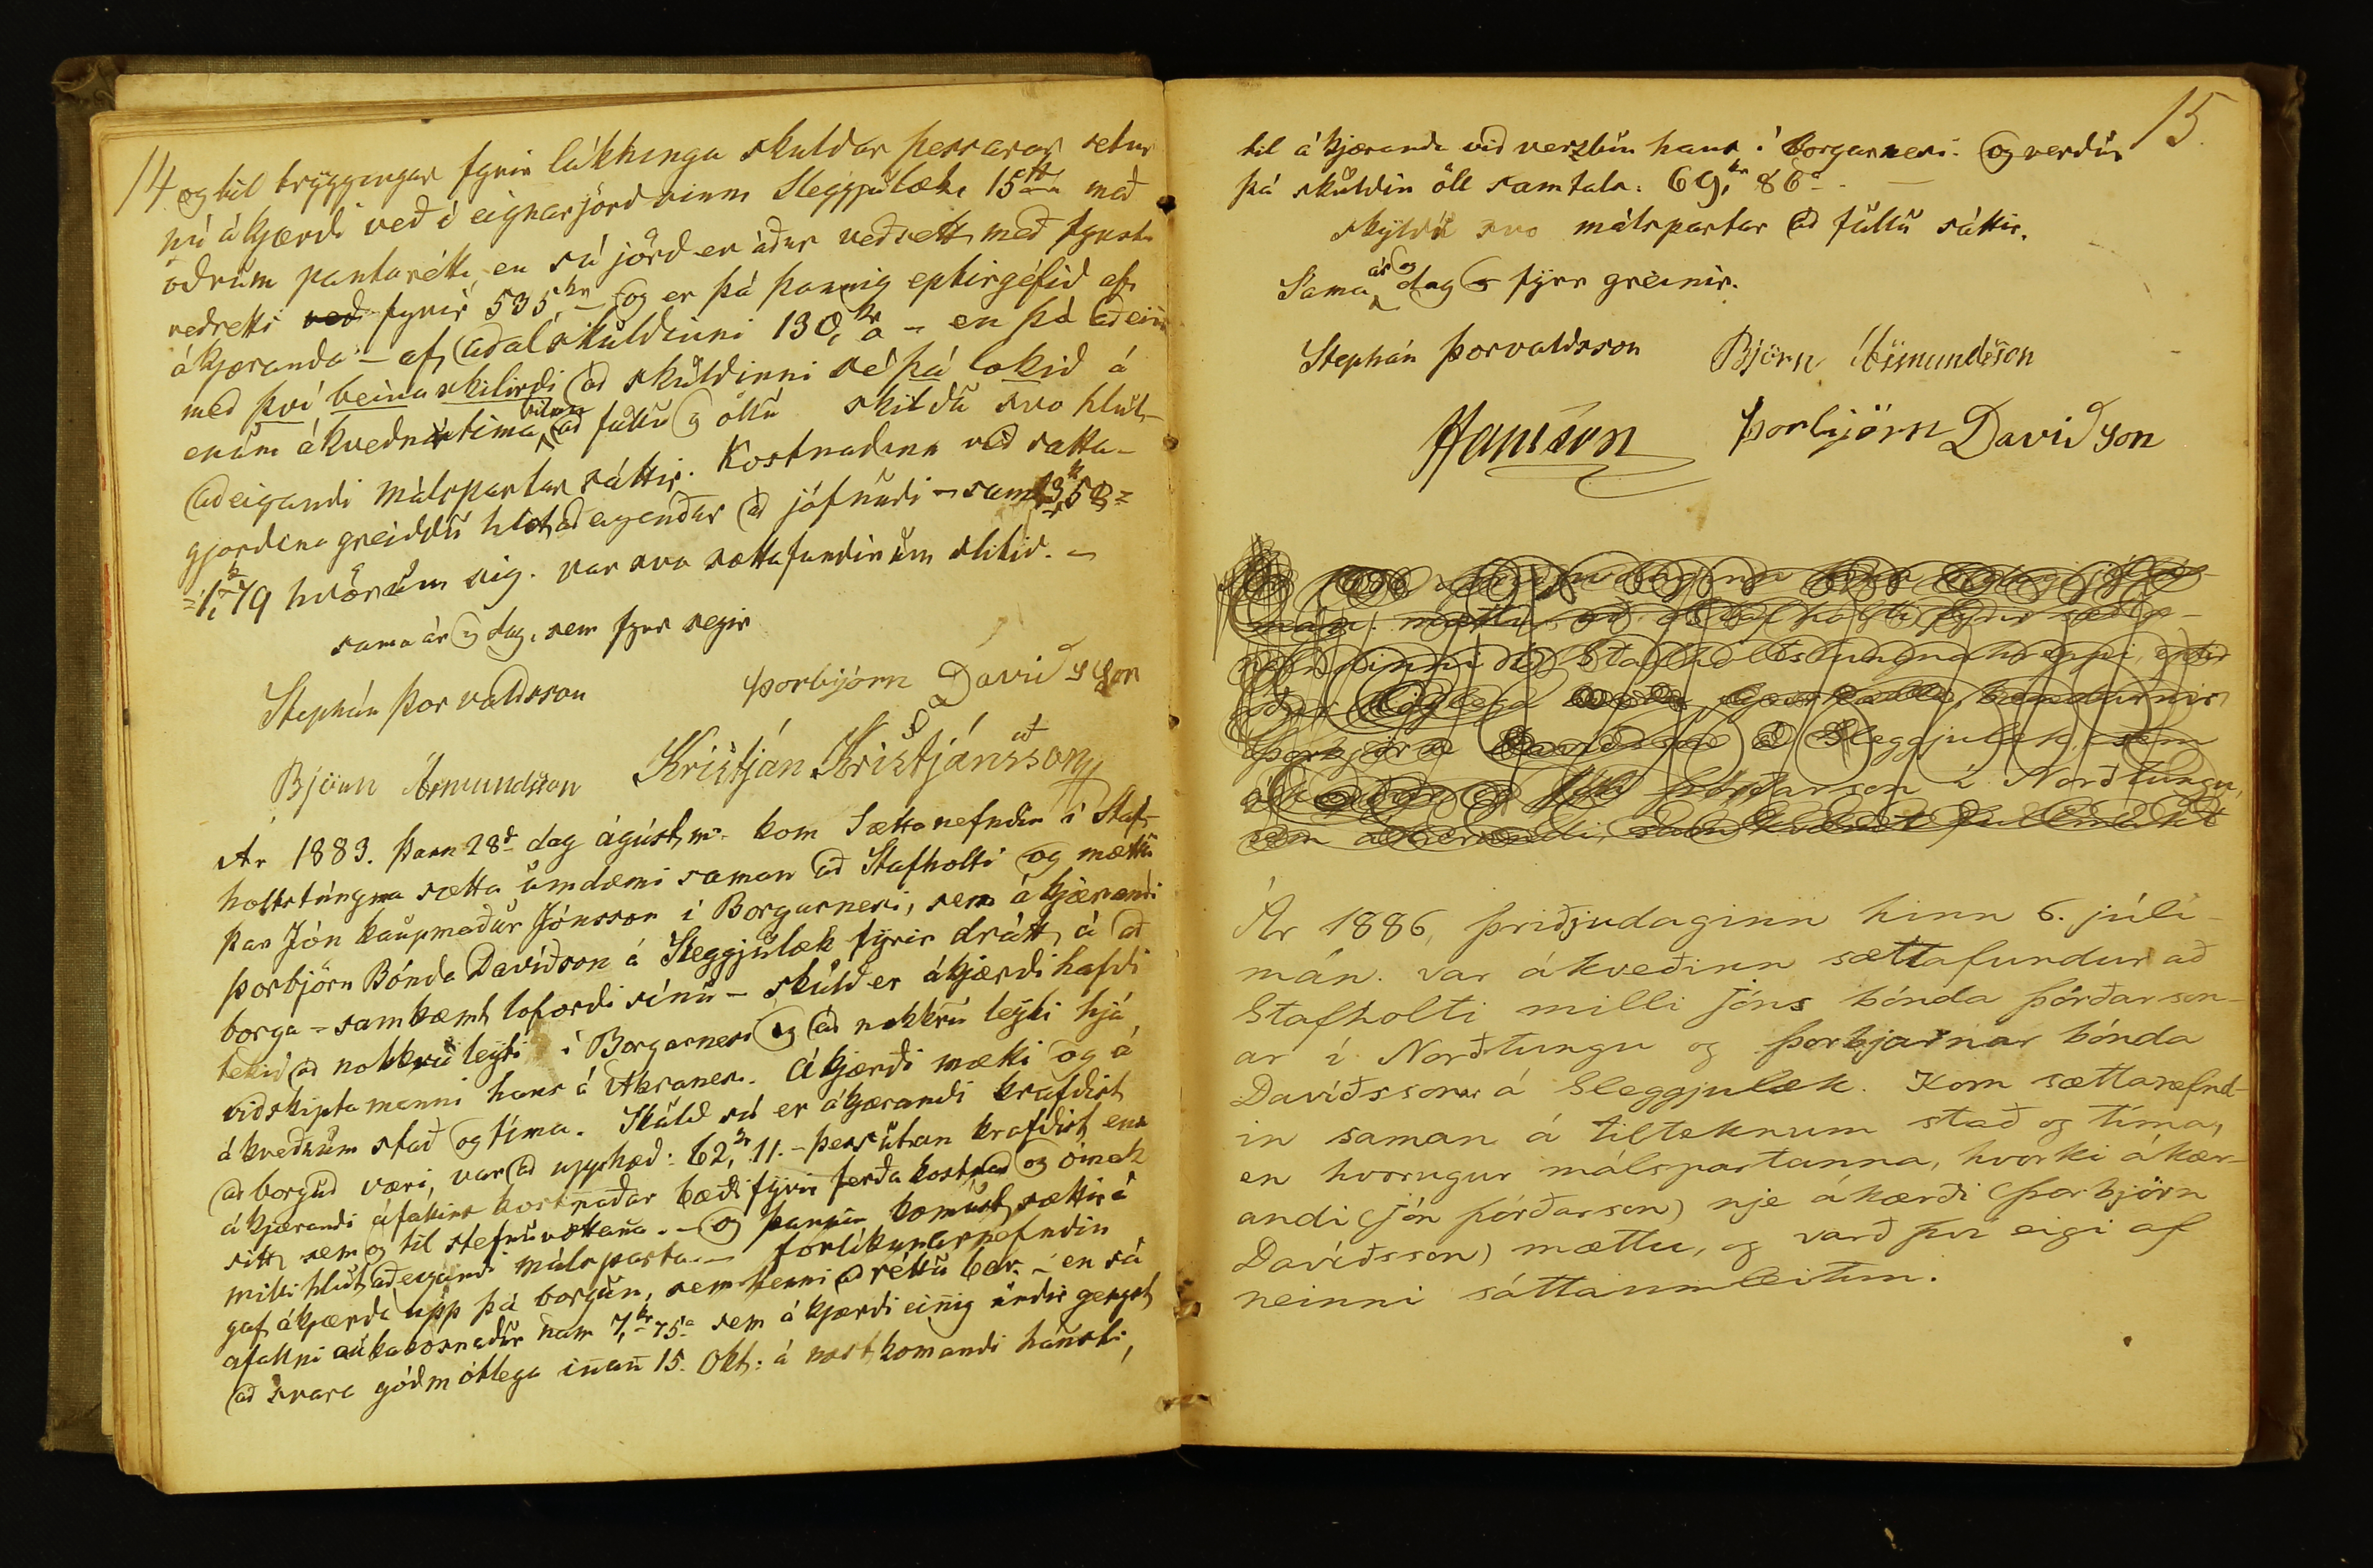 14
og til tryggingar fyrir lúkkninga skuldar þessarar setur
nú ákjærdi veð í eignarjörð sinni Sleggjulæk 15 hdr með
öðrum pantarétti, en sú jörð er áður veðsett með fyrsta
veðretti veð fyrir 535, kr – og er þá þannig eptirgefið af
ákjæranda – af aðalskuldinni 130, kr a – en þó aðeins
með því beina skilirdi að skuldinni sé þá lokið á
enum ákveðna tíma að fullu og öllu skildu svo hlut-
aðeigandi málspartar sáttir. Kostnadinn við sátta-
gjordina greiddu hlutadeigendur að jöfnudi – sam 3,58 =
= 1, 79 hvörum sig. var svo sættafundinum slitið. –
sama ár og dag, sem fyrr segir
Stephán Þorvaldsson Þorbjörn Daviðsson
Björn Ásmundsson Kristján Kristjánsson
Ár 1883. Þann 28d dag ágúst m. kom Sættanefndin í Staf-
holtstúngna sætta umdæmi saman að Stafholti og mætti
þar Jón kaupmaður Jónsson í Borgarnesi, sem ákjærandi
Þorbjörn Bónda Davíðson á Sleggjulæk fyrir drátt á að
borga – samkæmt loforði sínu – skuld er ákjærði hafdi
tekið að nokkru leyti í Borgarnesi og að nokkru leyti hjá
viðskiptamanni hans á Akranesi. Ákjærði mætti og á
ákveðnum stað og tíma. Skuld sú er ákjærandi krafdist
að borguð væri, var að upphæð: 62, kr 11. – þessutan krafdist enn
ákjærandi áfallins kostnaðar bæði fyrir ferða kostnað og ómak
sitt sem og til stefnuvottana. – og þannin komust sættir á
milli hlutaðeigandi málsparta. – forlíkunarnefndin
gaf ákjærða upp þá borgun, sem henni að réttu bar. – en sá
afallni aukakosnadur nam 7, kr 75 a sem ákjærði einnig undir gengst
að svara góðmótlega innan 15. Okt: á næstkomandi hausti,
15.
til ákjæranda við verzlun hans í Borgarnesi. og verdur
þá skuldin öll samtals: 69, kr 86 a. –
skyldu svo málspartar að fullu sáttir.
Sama ár og dag og fyrr greinir.
Stephán Þorvaldsson Björn Ásmundsson
JJónsson Þorbjörn Daviðson
mán. mættu að Stafholti fyrir sætta-
nefndinni í Stafholtstungnahreppi, eptir
áður löglega bændurnir
Þorbjörn Davíðsson á Sleggjulæk, sem
Jón Þórðarson í Norðtungu,
sem ákærandi,
Ár 1886, þriðjudaginn hinn 6. júlí-
mán. var ákveðinn sættafundur að
Stafholti milli Jóns bónda Þórðarson-
ar í Norðtungu og Þorbjarnar bónda
Davíðssonar á Sleggjulæk. Kom sættanefnd-
in saman á tilteknum stað og tíma,
en hvorugur málspartanna, hvorki ákær-
andi (Jón Þórðarson) nje ákærði (Þorbjörn
Davíðsson) mættu, og varð því eigi af
neinni sáttaumleitun.